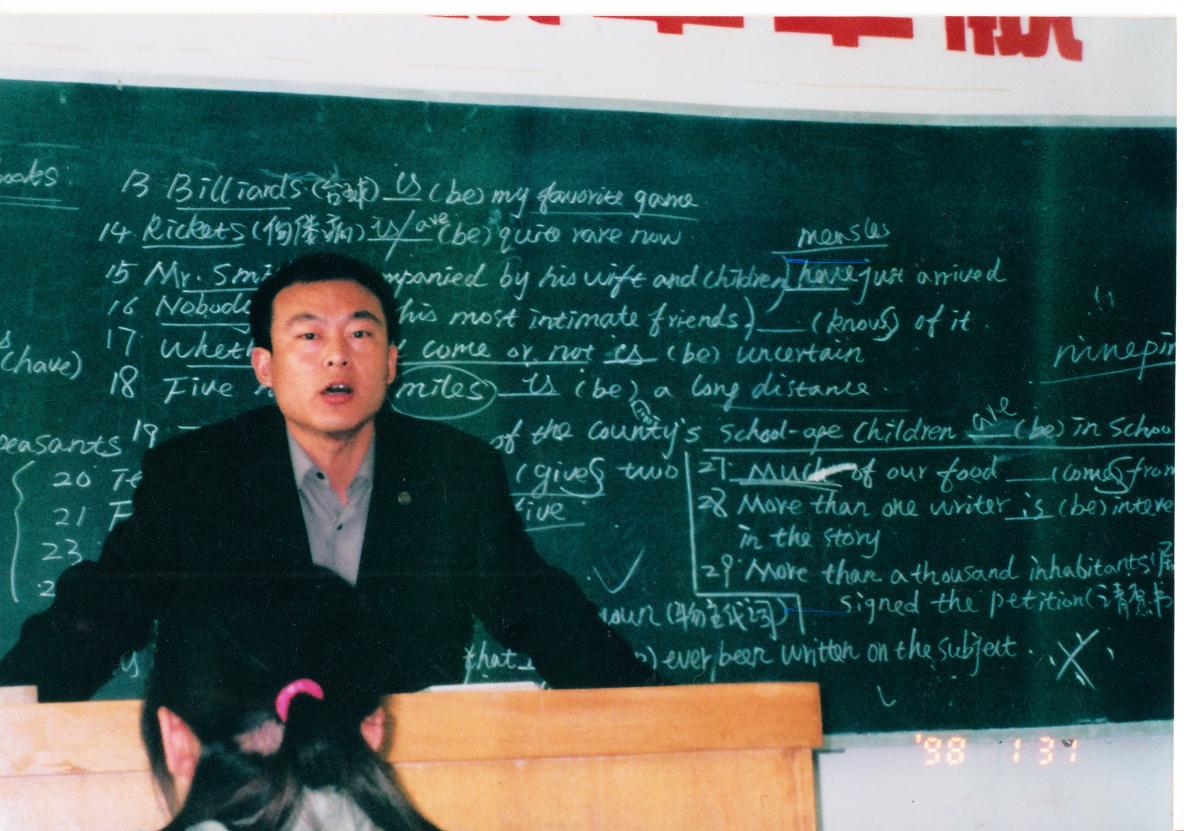 ooks
13 Billiards (台球) is (be) my favorite game
14 Rickets (佝偻病) is/are (be) quite rare now
measles
15 Mr. Smi mpanied by his wife and children) have just arrived
16 Nobod his most intimate friends) (knows) of it.
17 Wheth come or not is (be) uncertain
(have)
ninepin
18 Five miles is (be) a long distance.
peasants 19 of the county's school-age children are (be) in schoo
20 Te (gives) two
21 F ive
23
2
27. Much of our food (comes) from
28 More than one writer is (be) intere
in the story
29. More than a thousand inhabitants (居
signed the petition (请愿书
noun (物主代词)
that ) ever been written on the subject.
'98 1 31